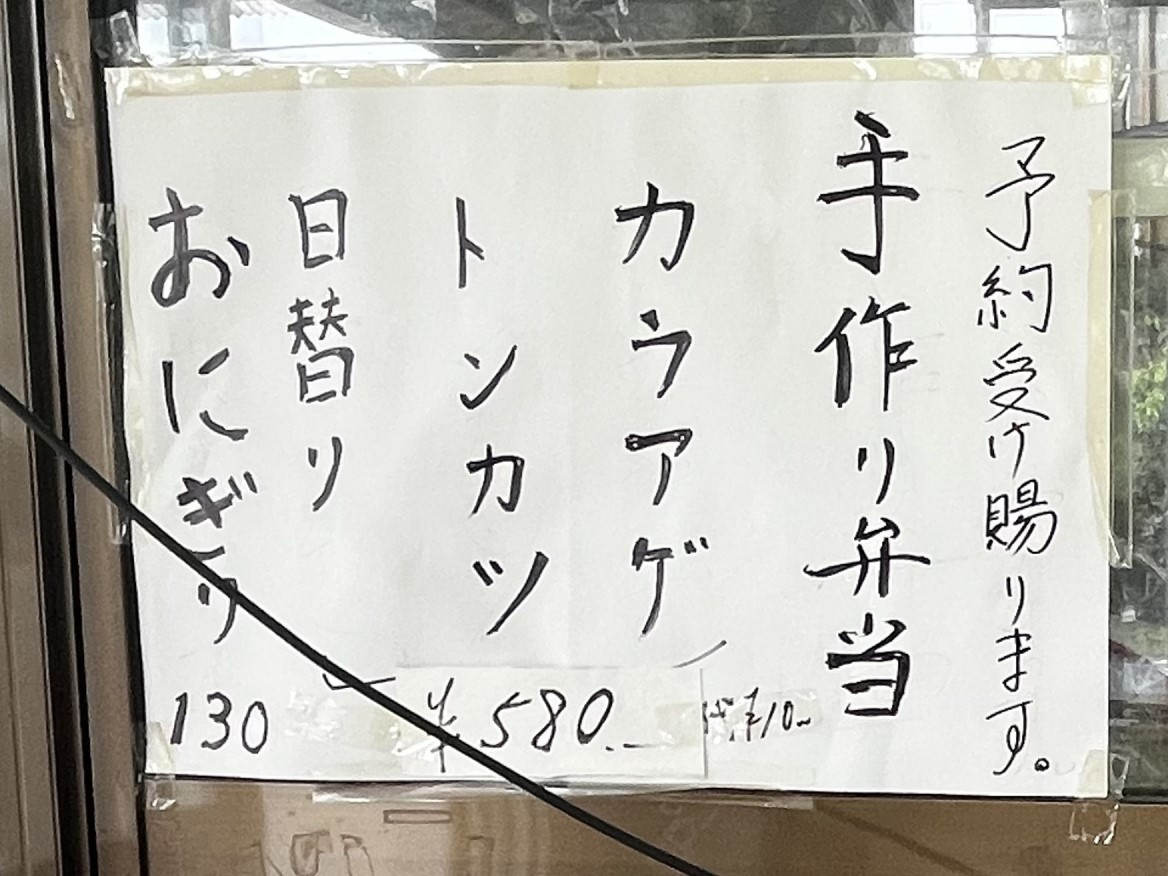 予約受け賜ります。
手作り弁当
カラアゲ
トンカツ
日替り
¥580.
おにぎり
130